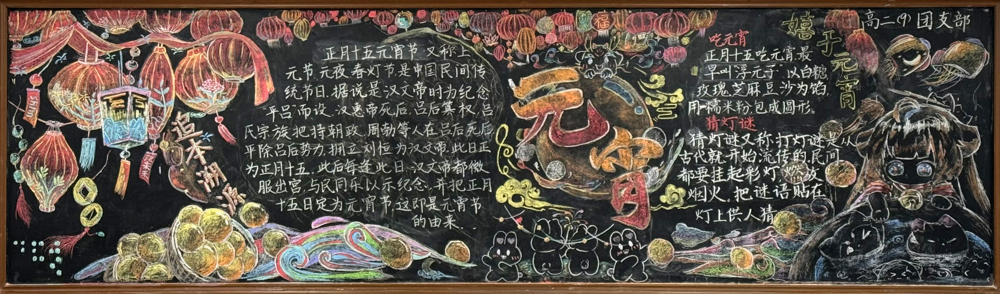 追本溯源
正月十五元宵节又称上
元节元夜、春灯节是中国民间传
统节日.据说是汉文帝时为纪念
平吕而设.汉惠帝死后,吕后篡权,吕
氏宗族把持朝政.周勃等人在吕后死后,
平除吕后势力,拥立刘恒为汉文帝.此日正
为正月十五.此后每逢此日,汉文帝都微
服出宫,与民同乐以示纪念.并把正月
十五日定为元宵节.这即是元宵节
的由来.
元宵
嬉乎元宵
高二(9)团支部
吃元宵
正月十五吃元宵最
早叫"浮元子"以白糖、
玫瑰、芝麻、豆沙为馅,
用糯米粉包成圆形.
猜灯谜
猜灯谜又称打灯谜是从
古代就开始流传的民间
都要挂起彩灯,燃放
烟火,把谜语贴在
灯上供人猜.